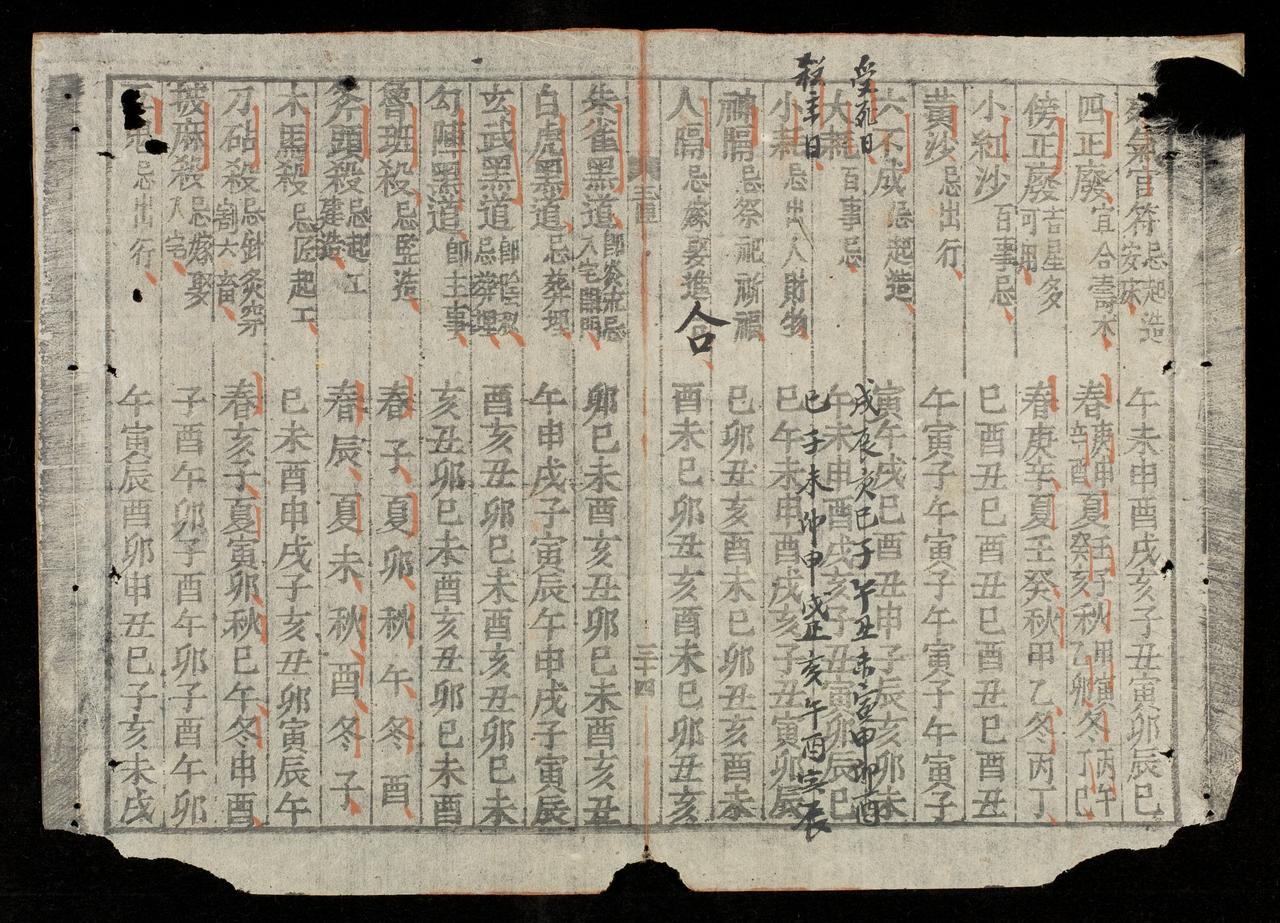 官符忌起造安床　午未申酉戌亥子丑寅卯辰巳
四正廢宜合壽木　春庚申辛酉夏壬子癸亥秋甲寅乙卯冬丙午丁巳
傍正廢吉星多可用　春庚辛夏壬癸秋甲乙冬丙丁
小紅沙百事忌　巳酉丑巳酉丑巳酉丑巳酉丑
黃沙忌出行　午寅子午寅子午寅子午寅子
六不成忌起造　寅午戌巳酉丑申子辰亥卯未
受死日　戌辰亥巳子午丑未寅申卯酉
大耗百事忌　午未申酉戌亥子丑寅卯辰巳
殺主日　巳子未卯申戌丑亥午酉寅辰
小耗忌出人財物　巳午未申酉戌亥子丑寅卯辰
禍隔忌祭祀祈福　巳卯丑亥酉未巳卯丑亥酉未
人隔忌嫁娶進人口　酉未巳卯丑亥酉未巳卯丑亥
三十四
朱雀黑道入宅開門　卯巳未酉亥丑卯巳未酉亥丑
白虎黑道忌葬埋　午申戌子寅辰午申戌子寅辰
玄武黑道忌葬埋　酉亥丑卯巳未酉亥丑卯巳未
勾陣黑道即主事　亥丑卯巳未酉亥丑卯巳未酉
魯班殺忌竪造　春子夏卯秋午冬酉
斧頭殺忌起工建造　春辰夏未秋酉冬子
木馬殺忌匠起工　巳未酉申戌子亥丑卯寅辰午
刀砧殺忌針灸穿割六畜　春亥子夏寅卯秋巳午冬申酉
披麻殺忌嫁娶入宅　子酉午卯子酉午卯子酉午卯
忌出行　午寅辰酉卯申丑巳子亥未戌